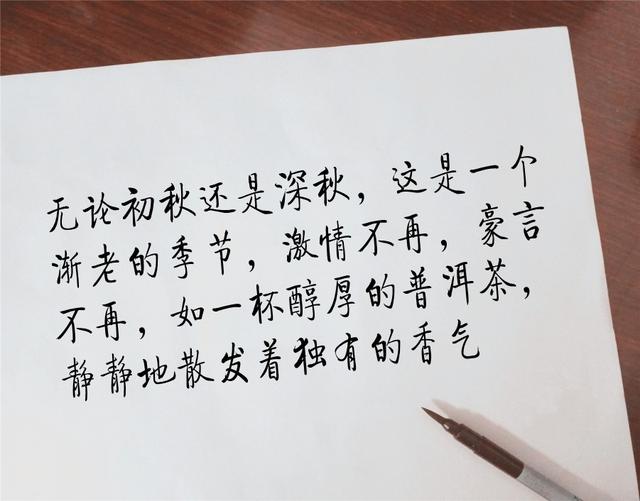 无论初秋还是深秋，这是一个
渐老的季节，激情不再，豪言
不再，如一杯醇厚的普洱茶，
静静地散发着独有的香气